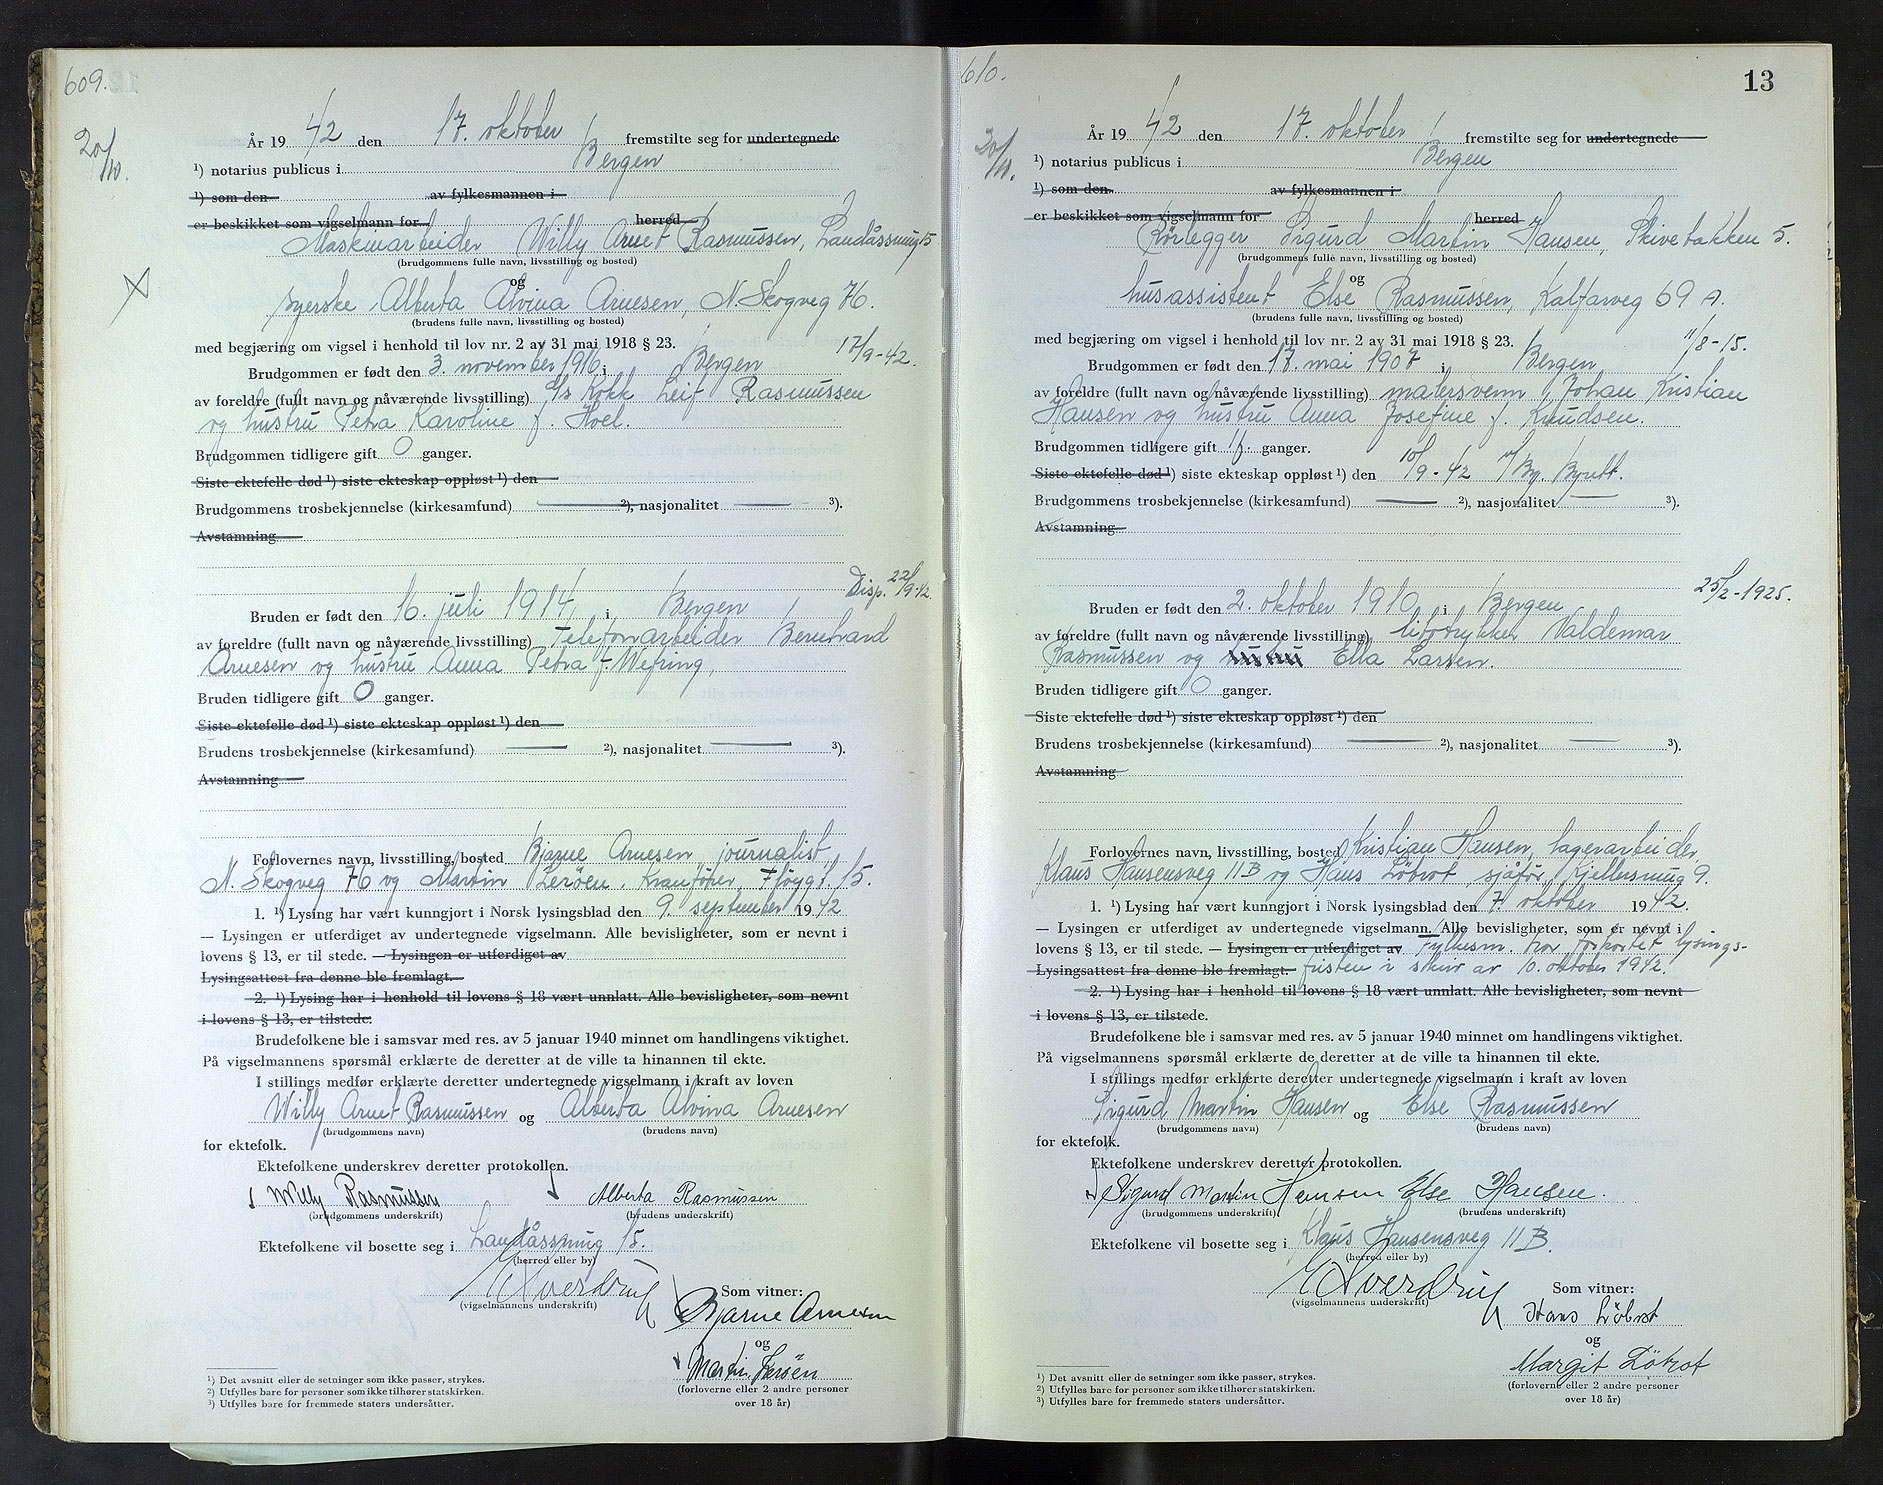 609.
20/10.
År 19 42 den 17. oktober fremstilte seg for undertegnede
¹) notarius publicus i Bergen
¹) som den av fylkesmannen i
er beskikket som vigselmann for herred
Maskinarbeider Willy Arnet Rasmussen, Landåssmug 15
(brudgommens fulle navn, livsstilling og bosted)
og
syerske Alberta Alvina Arnesen, N. Skogveg 76.
(brudens fulle navn, livsstilling og bosted)
med begjæring om vigsel i henhold til lov nr. 2 av 31 mai 1918 § 23.
17/9-42.
Brudgommen er født den 3. november 1916 i Bergen
av foreldre (fullt navn og nåværende livsstilling) Kokk Leif Rasmussen
og hustru Petra Karoline f. Hoel.
Brudgommen tidligere gift 0 ganger.
Siste ektefelle død ¹) siste ekteskap oppløst ¹) den
Brudgommens trosbekjennelse (kirkesamfund) ²), nasjonalitet ³).
Avstamning
Disp. 22/9-42.
Bruden er født den 16. juli 1914 i Bergen
av foreldre (fullt navn og nåværende livsstilling) Telefonarbeider Bernhard
Arnesen og hustru Anna Petra f. Wefring,
Bruden tidligere gift 0 ganger.
Siste ektefelle død ¹) siste ekteskap oppløst ¹) den
Brudens trosbekjennelse (kirkesamfund) ²), nasjonalitet ³).
Avstamning
Forlovernes navn, livsstilling, bosted Bjarne Arnesen, journalist
N. Skogveg 76 og Martin Lerøen, kranfører, 15.
1. ¹) Lysing har vært kunngjort i Norsk lysingsblad den 9. september 1942
— Lysingen er utferdiget av undertegnede vigselmann. Alle bevisligheter, som er nevnt i
lovens § 13, er til stede. — Lysingen er utferdiget av
Lysingsattest fra denne ble fremlagt.
2. ¹) Lysing har i henhold til lovens § 18 vært unnlatt. Alle bevisligheter, som nevnt
i lovens § 13, er tilstede.
Brudefolkene ble i samsvar med res. av 5 januar 1940 minnet om handlingens viktighet.
På vigselmannens spørsmål erklærte de deretter at de ville ta hinannen til ekte.
I stillings medfør erklærte deretter undertegnede vigselmann i kraft av loven
Willy Arnet Rasmussen og Alberta Alvina Arnesen
(brudgommens navn) (brudens navn)
for ektefolk.
Ektefolkene underskrev deretter protokollen.
Willy Rasmussen Alberta Rasmussen
(brudgommens underskrift) (brudens underskrift)
Ektefolkene vil bosette seg i Landåssmug 15.
(herred eller by)
(vigselmannens underskrift)
Som vitner:
Bjarne Arnesen
og
Martin Lerøen
(forloverne eller 2 andre personer
over 18 år)
¹) Det avsnitt eller de setninger som ikke passer, strykes.
²) Utfylles bare for personer som ikke tilhører statskirken.
³) Utfylles bare for fremmede staters undersåtter.
610.
13
20/10.
År 19 42 den 17. oktober fremstilte seg for undertegnede
¹) notarius publicus i Bergen
¹) som den av fylkesmannen i
er beskikket som vigselmann for herred
Rørlegger Sigurd Martin Hansen, Skivebakken 5.
(brudgommens fulle navn, livsstilling og bosted)
og
husassistent Else Rasmussen, Kalfarveg 69 A.
(brudens fulle navn, livsstilling og bosted)
med begjæring om vigsel i henhold til lov nr. 2 av 31 mai 1918 § 23.
11/8-15.
Brudgommen er født den 17. mai 1907 i Bergen
av foreldre (fullt navn og nåværende livsstilling) malersvenn Johan Kristian
Hansen og hustru Anna Josefine f. Knudsen.
Brudgommen tidligere gift 1 ganger.
Siste ektefelle død ¹) siste ekteskap oppløst ¹) den 10/9-42 v/ Bg. Byrett.
Brudgommens trosbekjennelse (kirkesamfund) ²), nasjonalitet ³).
Avstamning
25/2-1925.
Bruden er født den 2. oktober 1910 i Bergen
av foreldre (fullt navn og nåværende livsstilling) litotrykker Valdemar
Rasmussen og Ella Larsen.
Bruden tidligere gift 0 ganger.
Siste ektefelle død ¹) siste ekteskap oppløst ¹) den
Brudens trosbekjennelse (kirkesamfund) ²), nasjonalitet ³).
Avstamning
Forlovernes navn, livsstilling, bosted Kristian Hansen, lagerarbeider,
Klaus Hansensveg 11B og Hans Löbrot, sjåfør, Kjellersmug 9.
1. ¹) Lysing har vært kunngjort i Norsk lysingsblad den 7. oktober 1942.
— Lysingen er utferdiget av undertegnede vigselmann. Alle bevisligheter, som er nevnt i
lovens § 13, er til stede. — Lysingen er utferdiget av Fylkesm. har forkortet lysings-
Lysingsattest fra denne ble fremlagt. fristen i skriv av 10. oktober 1942.
2. ¹) Lysing har i henhold til lovens § 18 vært unnlatt. Alle bevisligheter, som nevnt
i lovens § 13, er tilstede.
Brudefolkene ble i samsvar med res. av 5 januar 1940 minnet om handlingens viktighet.
På vigselmannens spørsmål erklærte de deretter at de ville ta hinannen til ekte.
I stillings medfør erklærte deretter undertegnede vigselmann i kraft av loven
Sigurd Martin Hansen og Else Rasmussen
(brudgommens navn) (brudens navn)
for ektefolk.
Ektefolkene underskrev deretter protokollen.
Sigurd Martin Hansen Else Hansen.
(brudgommens underskrift) (brudens underskrift)
Ektefolkene vil bosette seg i Klaus Hansensveg 11B.
(herred eller by)
(vigselmannens underskrift)
Som vitner:
Hans Löbrot
og
Margit Löbrot
(forloverne eller 2 andre personer
over 18 år)
¹) Det avsnitt eller de setninger som ikke passer, strykes.
²) Utfylles bare for personer som ikke tilhører statskirken.
³) Utfylles bare for fremmede staters undersåtter.